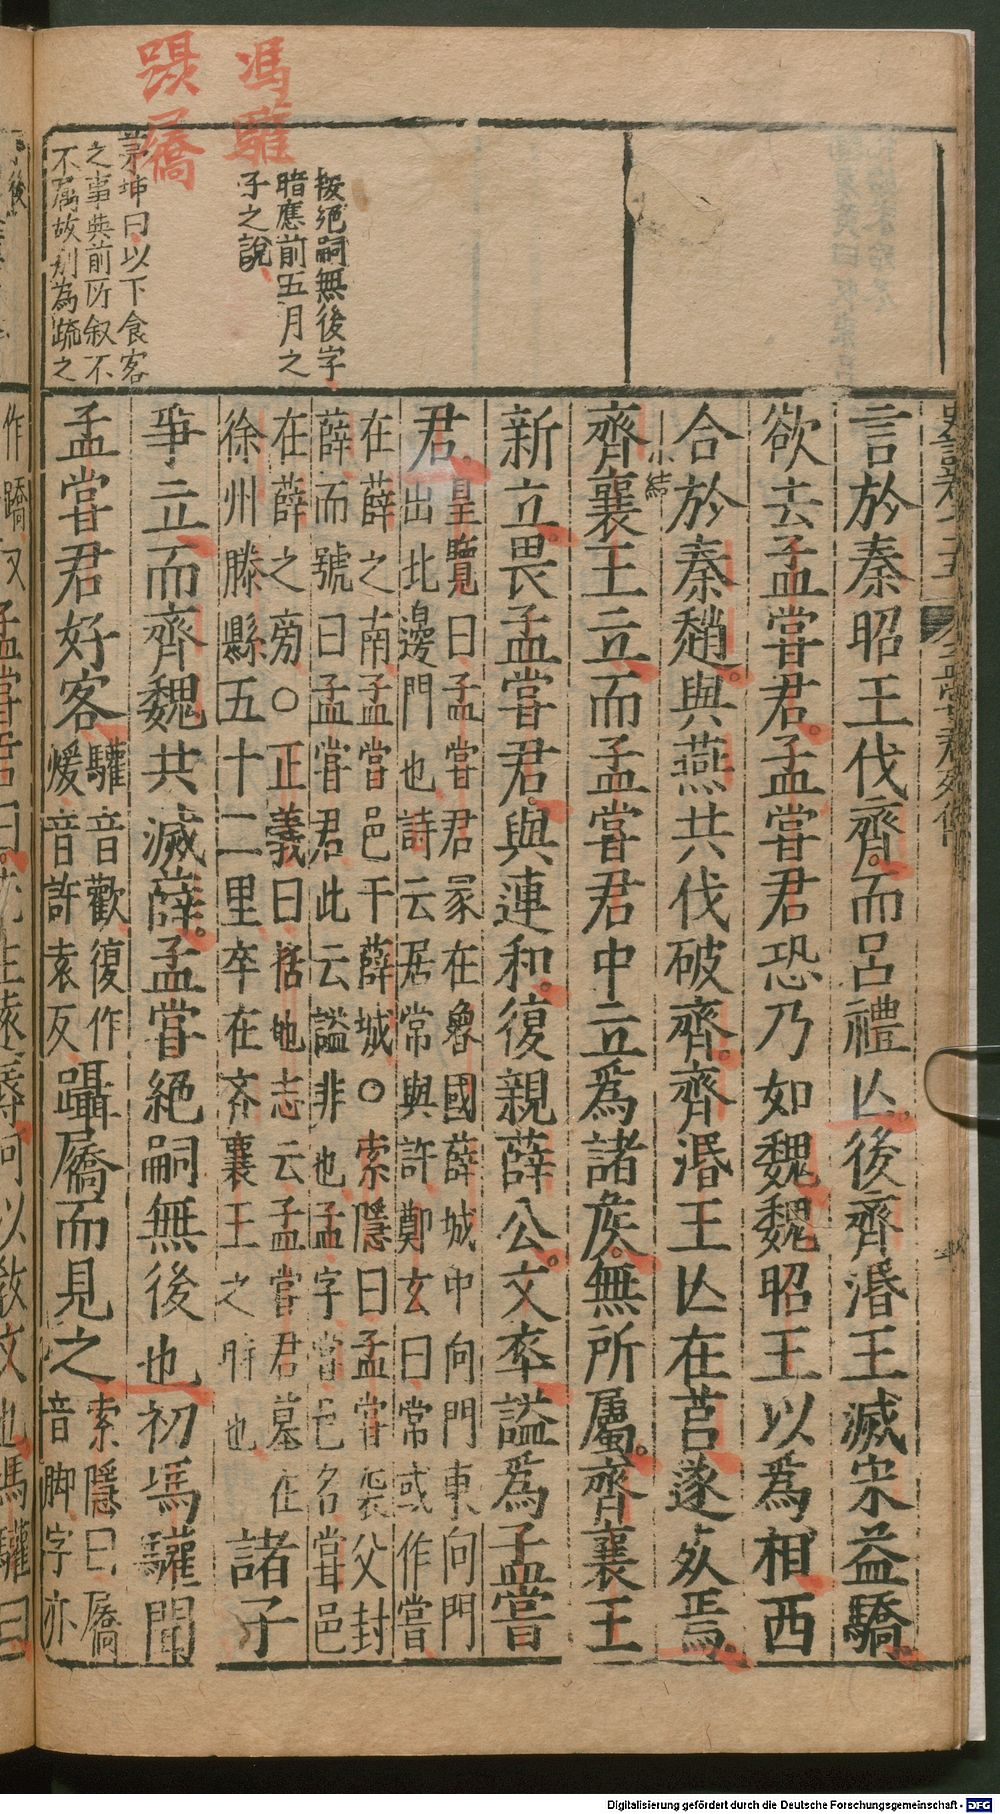 馮驩
躡屩
按絕嗣無後字
暗應前五月之
子之說
茅坤曰以下食客
之事與前所叙不
不屬故別為疏之
孟嘗君列傳
言於秦昭王伐齊而呂禮亾後齊湣王滅宋益驕
欲去孟嘗君孟嘗君恐乃如魏魏昭王以爲相西
合於秦趙與燕共伐破齊齊湣王亾在莒遂死焉
小結
齊襄王立而孟嘗君中立爲諸矦無所屬齊襄王
新立畏孟嘗君與連和復親薛公文卒謚爲孟嘗
君
皇覽曰孟嘗君冢在魯國薛城中向門東向門
出北邊門也詩云居常與許鄭玄曰常或作嘗
在薛之南孟嘗邑于薛城○索隱曰孟嘗襲父封
薛而號曰孟嘗君此云謚非也孟字嘗邑名嘗邑
在薛之旁○正義曰括地志云孟嘗君墓在
徐州滕縣五十二里卒在齊襄王之時也
諸子
爭立而齊魏共滅薛孟嘗絕嗣無後也初馮驩聞
孟嘗君好客
驩音歡復作
煖音許袁反
躡屩而見之
索隱曰屩
音脚字亦
作蹻又
孟嘗君曰先生遠辱何以敎文也馮驩曰
Digitalisierung gefördert durch die Deutsche Forschungsgemeinschaft - DFG